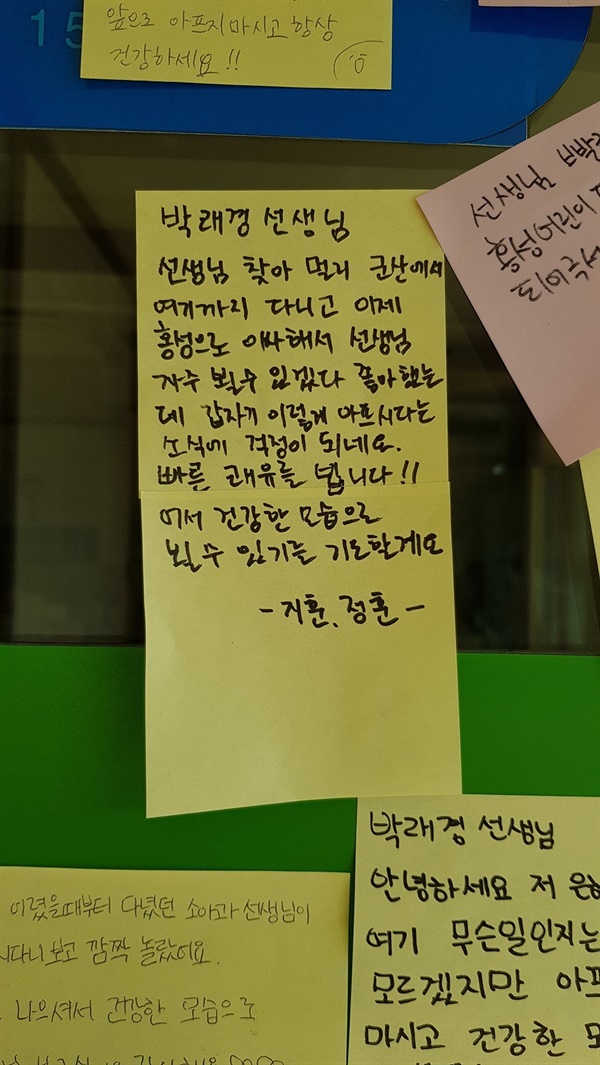 15
앞으로 아프지마시고 항상
건강하세요!!
박래경 선생님
선생님 찾아 멀리 군산에서
여기까지 다니고 이제
홍성으로 이사해서 선생님
자주 뵐수 있겠다 좋아했는
데 갑자기 이렇게 아프시다는
소식에 걱정이 되네요.
빠른 쾌유를 빕니다!!
어서 건강한 모습으로
뵐수 있기를 기도할게요
- 지훈, 정훈 -
선생님
홍성어린이
박래경 선생님
안녕하세요 저 은
여기 무슨일인지는
모르겠지만 아프
마시고 건강한 모
어렸을때부터 다녔던 소아과 선생님이
보고 깜짝 놀랐어요.
나으셔서 건강한 모습으로